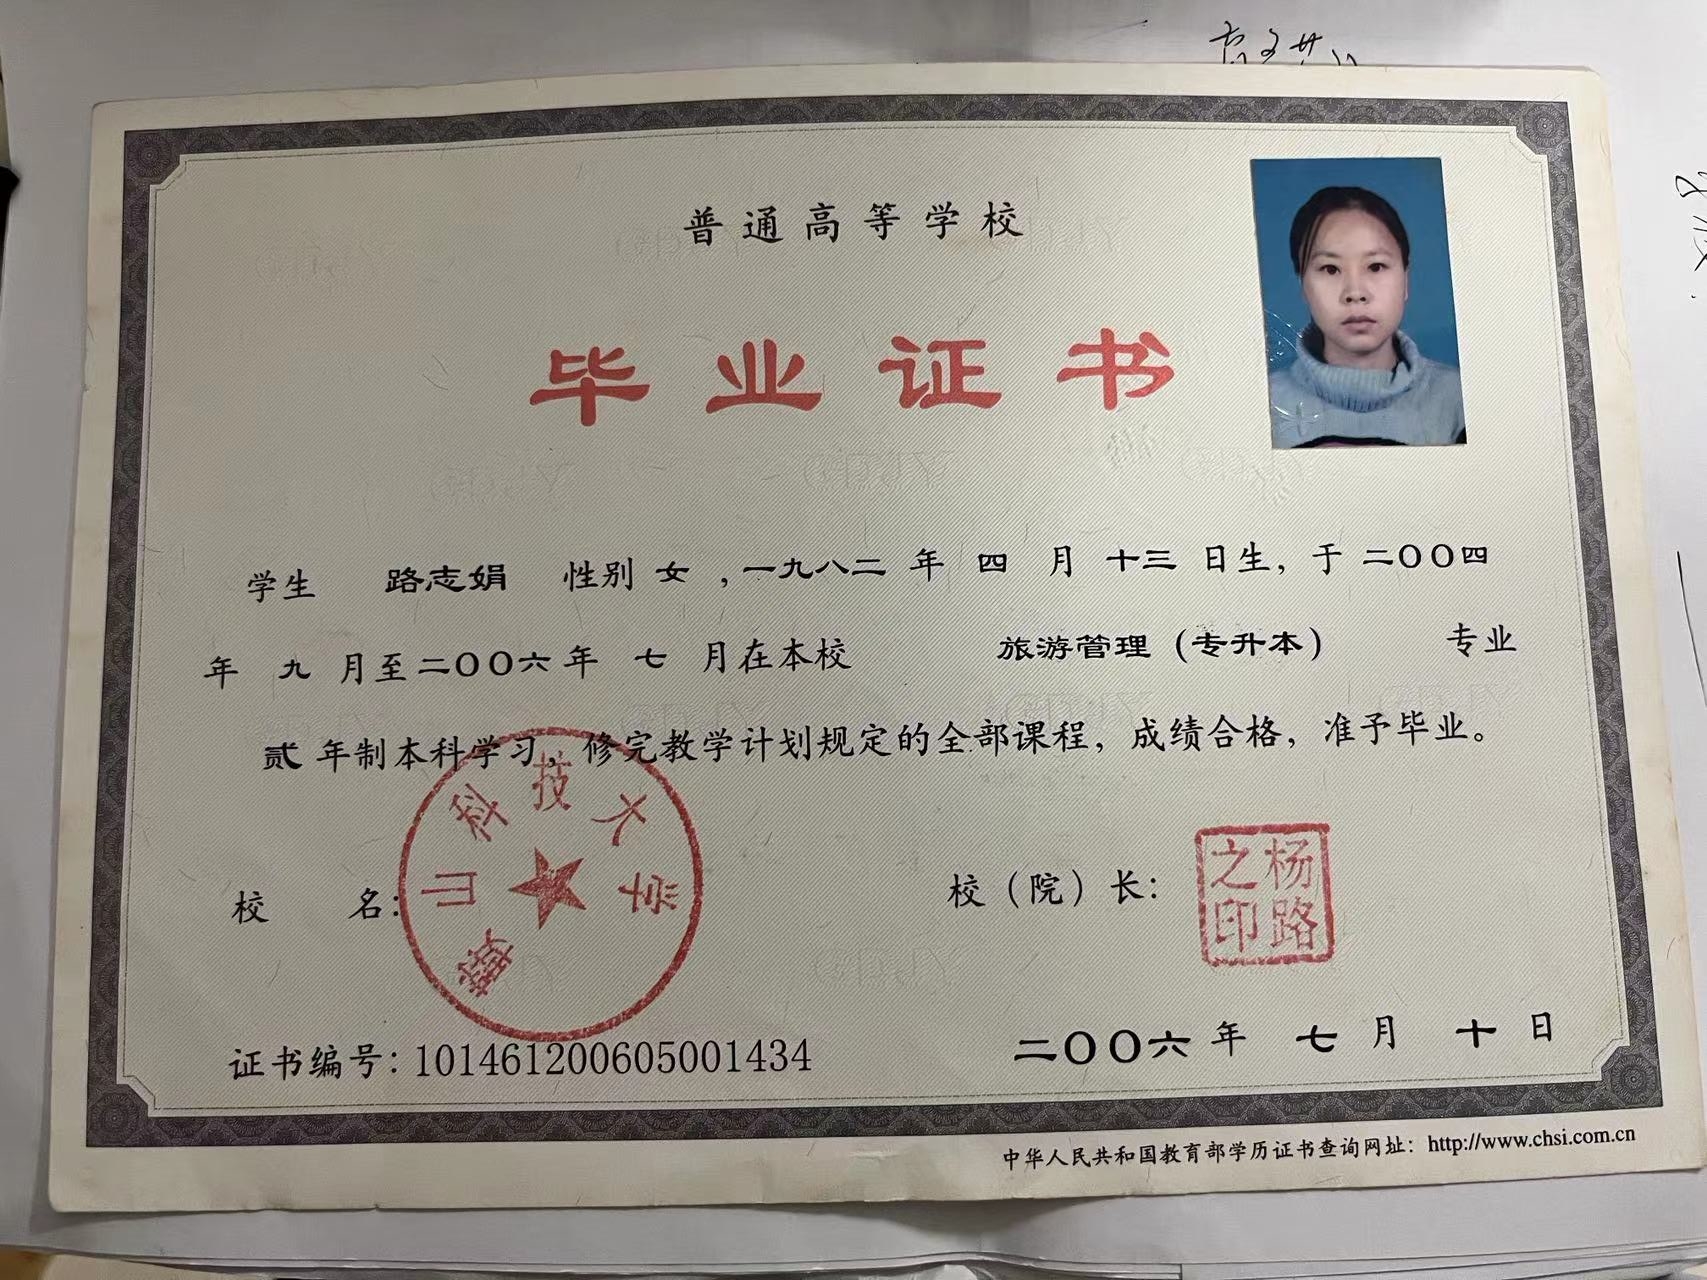 普通高等学校
毕业证书
学生 路志娟 性别 女 ,一九八二 年 四 月 十三 日生, 于 二〇〇四
年 九 月至二〇〇六年 七 月在本校 旅游管理（专升本） 专业
贰 年制本科学习, 修完教学计划规定的全部课程, 成绩合格, 准予毕业。
校 名:
鞍山科技大学
校（院）长:
杨路之印
证书编号: 101461200605001434
二〇〇六 年 七 月 十 日
中华人民共和国教育部学历证书查询网址: http://www.chsi.com.cn